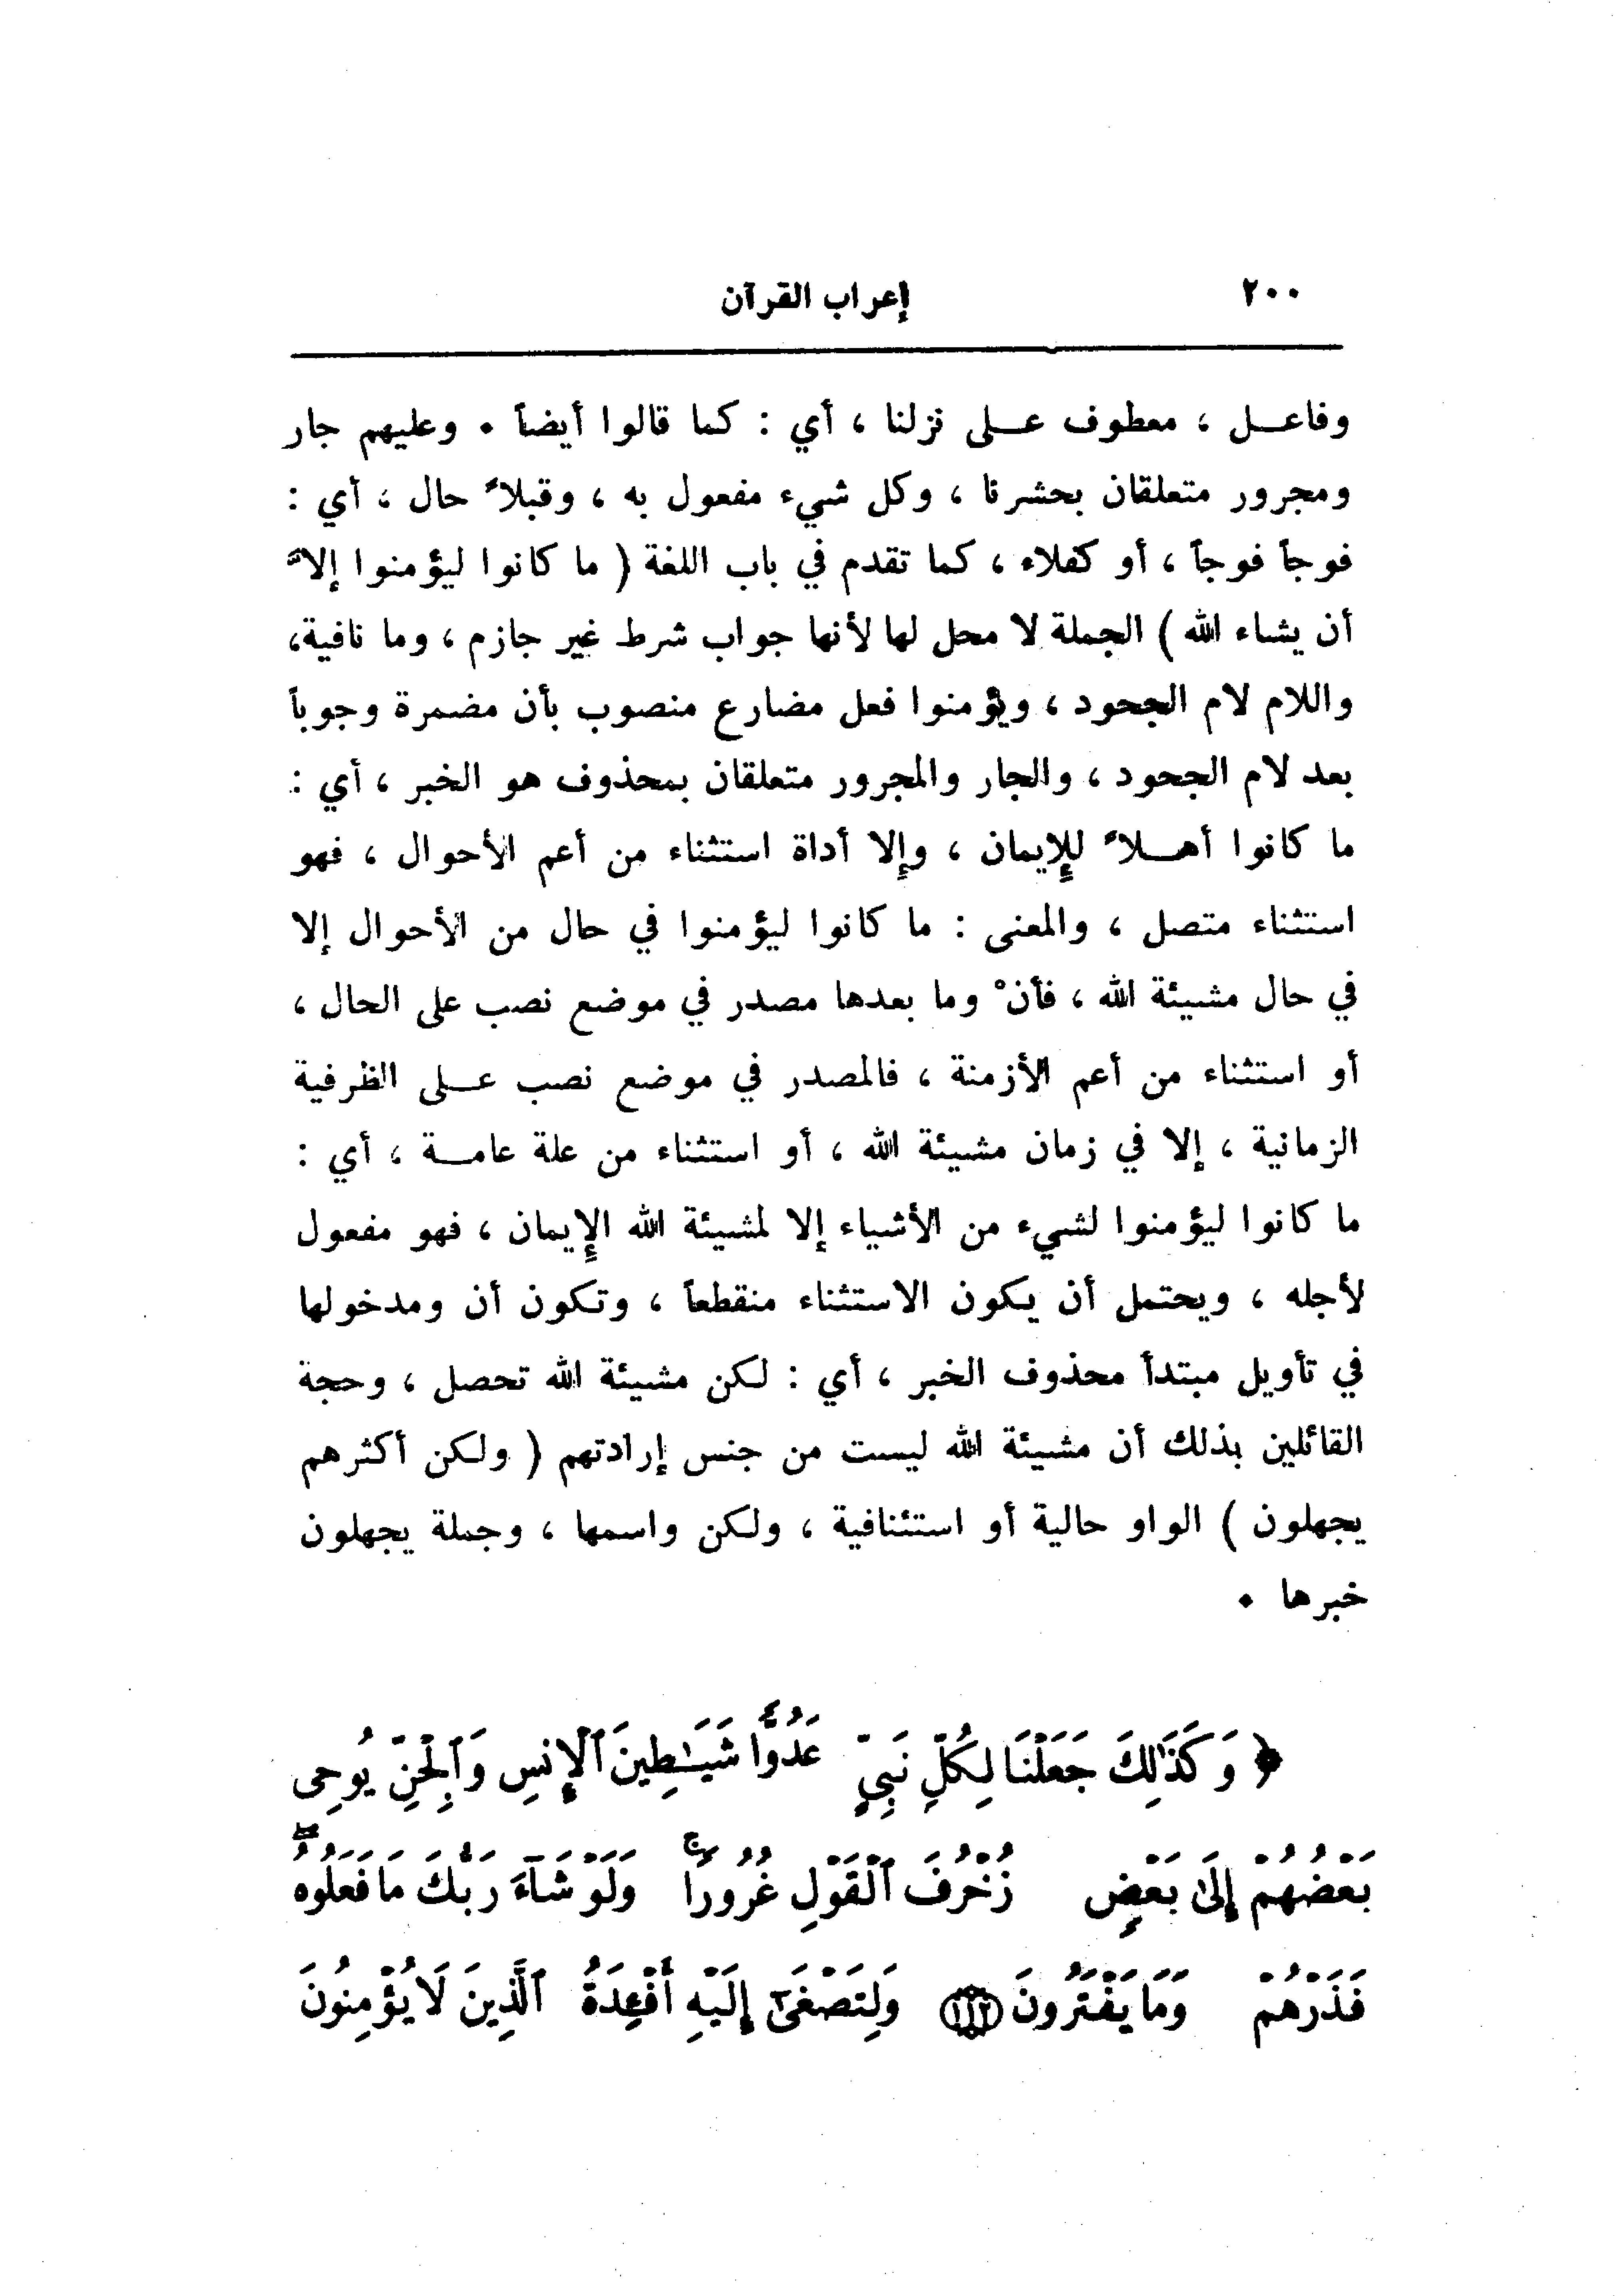 ٢٠٠ إعراب القرآن
وفاعل ، معطوف على نزلنا ، أي : كما قالوا أيضاً . وعليهم جار
ومجرور متعلقان بحشرنا ، وكل شيء مفعول به ، وقبلاً حال ، أي :
فوجاً فوجاً ، أو كفلاء ، كما تقدم في باب اللغة ( ما كانوا ليؤمنوا إلاَّ
أن يشاء الله ) الجملة لا محل لها لأنها جواب شرط غير جازم ، وما نافية،
واللام لام الجحود ، ويؤمنوا فعل مضارع منصوب بأن مضمرة وجوباً
بعد لام الجحود ، والجار والمجرور متعلقان بمحذوف هو الخبر ، أي :
ما كانوا أهلاً للإيمان ، وإلا أداة استثناء من أعم الأحوال ، فهو
استثناء متصل ، والمعنى : ما كانوا ليؤمنوا في حال من الأحوال إلا
في حال مشيئة الله ، فأنْ وما بعدها مصدر في موضع نصب على الحال ،
أو استثناء من أعم الأزمنة ، فالمصدر في موضع نصب على الظرفية
الزمانية ، إلا في زمان مشيئة الله ، أو استثناء من علة عامة ، أي :
ما كانوا ليؤمنوا لشيء من الأشياء إلا لمشيئة الله الإيمان ، فهو مفعول
لأجله ، ويحتمل أن يكون الاستثناء منقطعاً ، وتكون أن ومدخولها
في تأويل مبتدأ محذوف الخبر ، أي : لكن مشيئة الله تحصل ، وحجة
القائلين بذلك أن مشيئة الله ليست من جنس إرادتهم ( ولكن أكثرهم
يجهلون ) الواو حالية أو استئنافية ، ولكن واسمها ، وجملة يجهلون
خبرها .
﴿ وَكَذَٰلِكَ جَعَلْنَا لِكُلِّ نَبِيٍّ عَدُوًّا شَيَٰطِينَ ٱلْإِنسِ وَٱلْجِنِّ يُوحِى
بَعْضُهُمْ إِلَىٰ بَعْضٍ زُخْرُفَ ٱلْقَوْلِ غُرُورًا ۚ وَلَوْ شَآءَ رَبُّكَ مَا فَعَلُوهُ ۖ
فَذَرْهُمْ وَمَا يَفْتَرُونَ ﴿١١٢﴾ وَلِتَصْغَىٰٓ إِلَيْهِ أَفْـِٔدَةُ ٱلَّذِينَ لَا يُؤْمِنُونَ